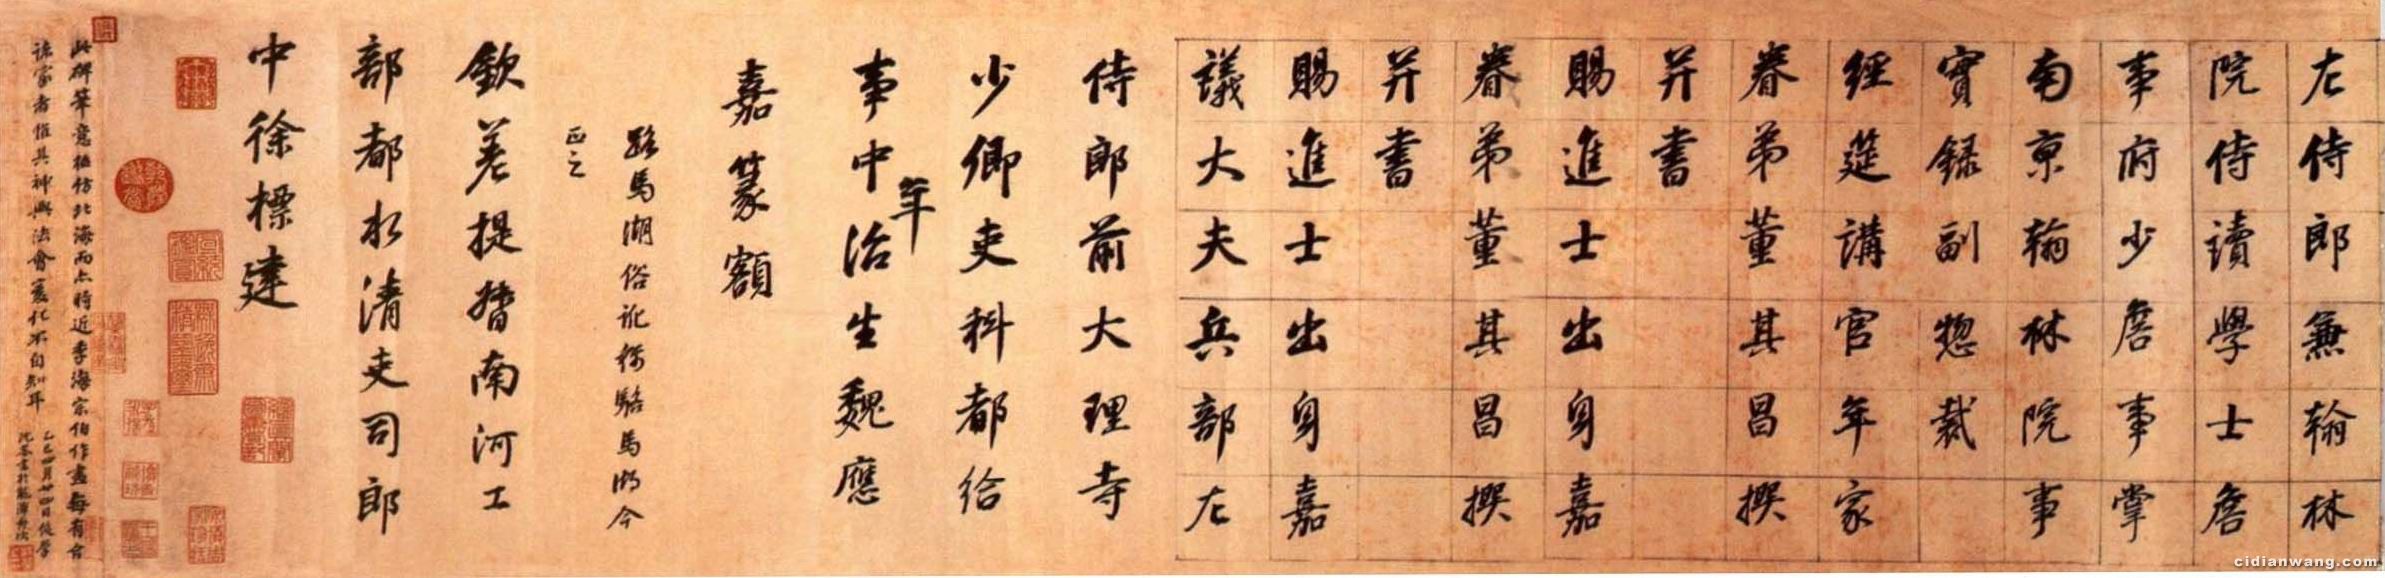 左侍郎兼翰林
院侍讀學士詹
事府少詹事掌
南京翰林院事
實録副揔裁
經筵講官年家
眷弟董其昌撰
并書
賜進士出身嘉
眷弟董其昌撰
并書
賜進士出身嘉
議大夫兵部左
侍郎前大理寺
少卿吏科都給
事中治年生魏應
嘉篆額
路馬湖俗訛稱駱馬湖今
正之
欽差提督南河工
部都水清吏司郎
中徐標建
此碑筆意極仿北海而点時近季海宗伯作書每有合
諸家者惟其神與法會變化不自知耳
乙巳四月廿四日後學
沈荃書於
cidianwang.com